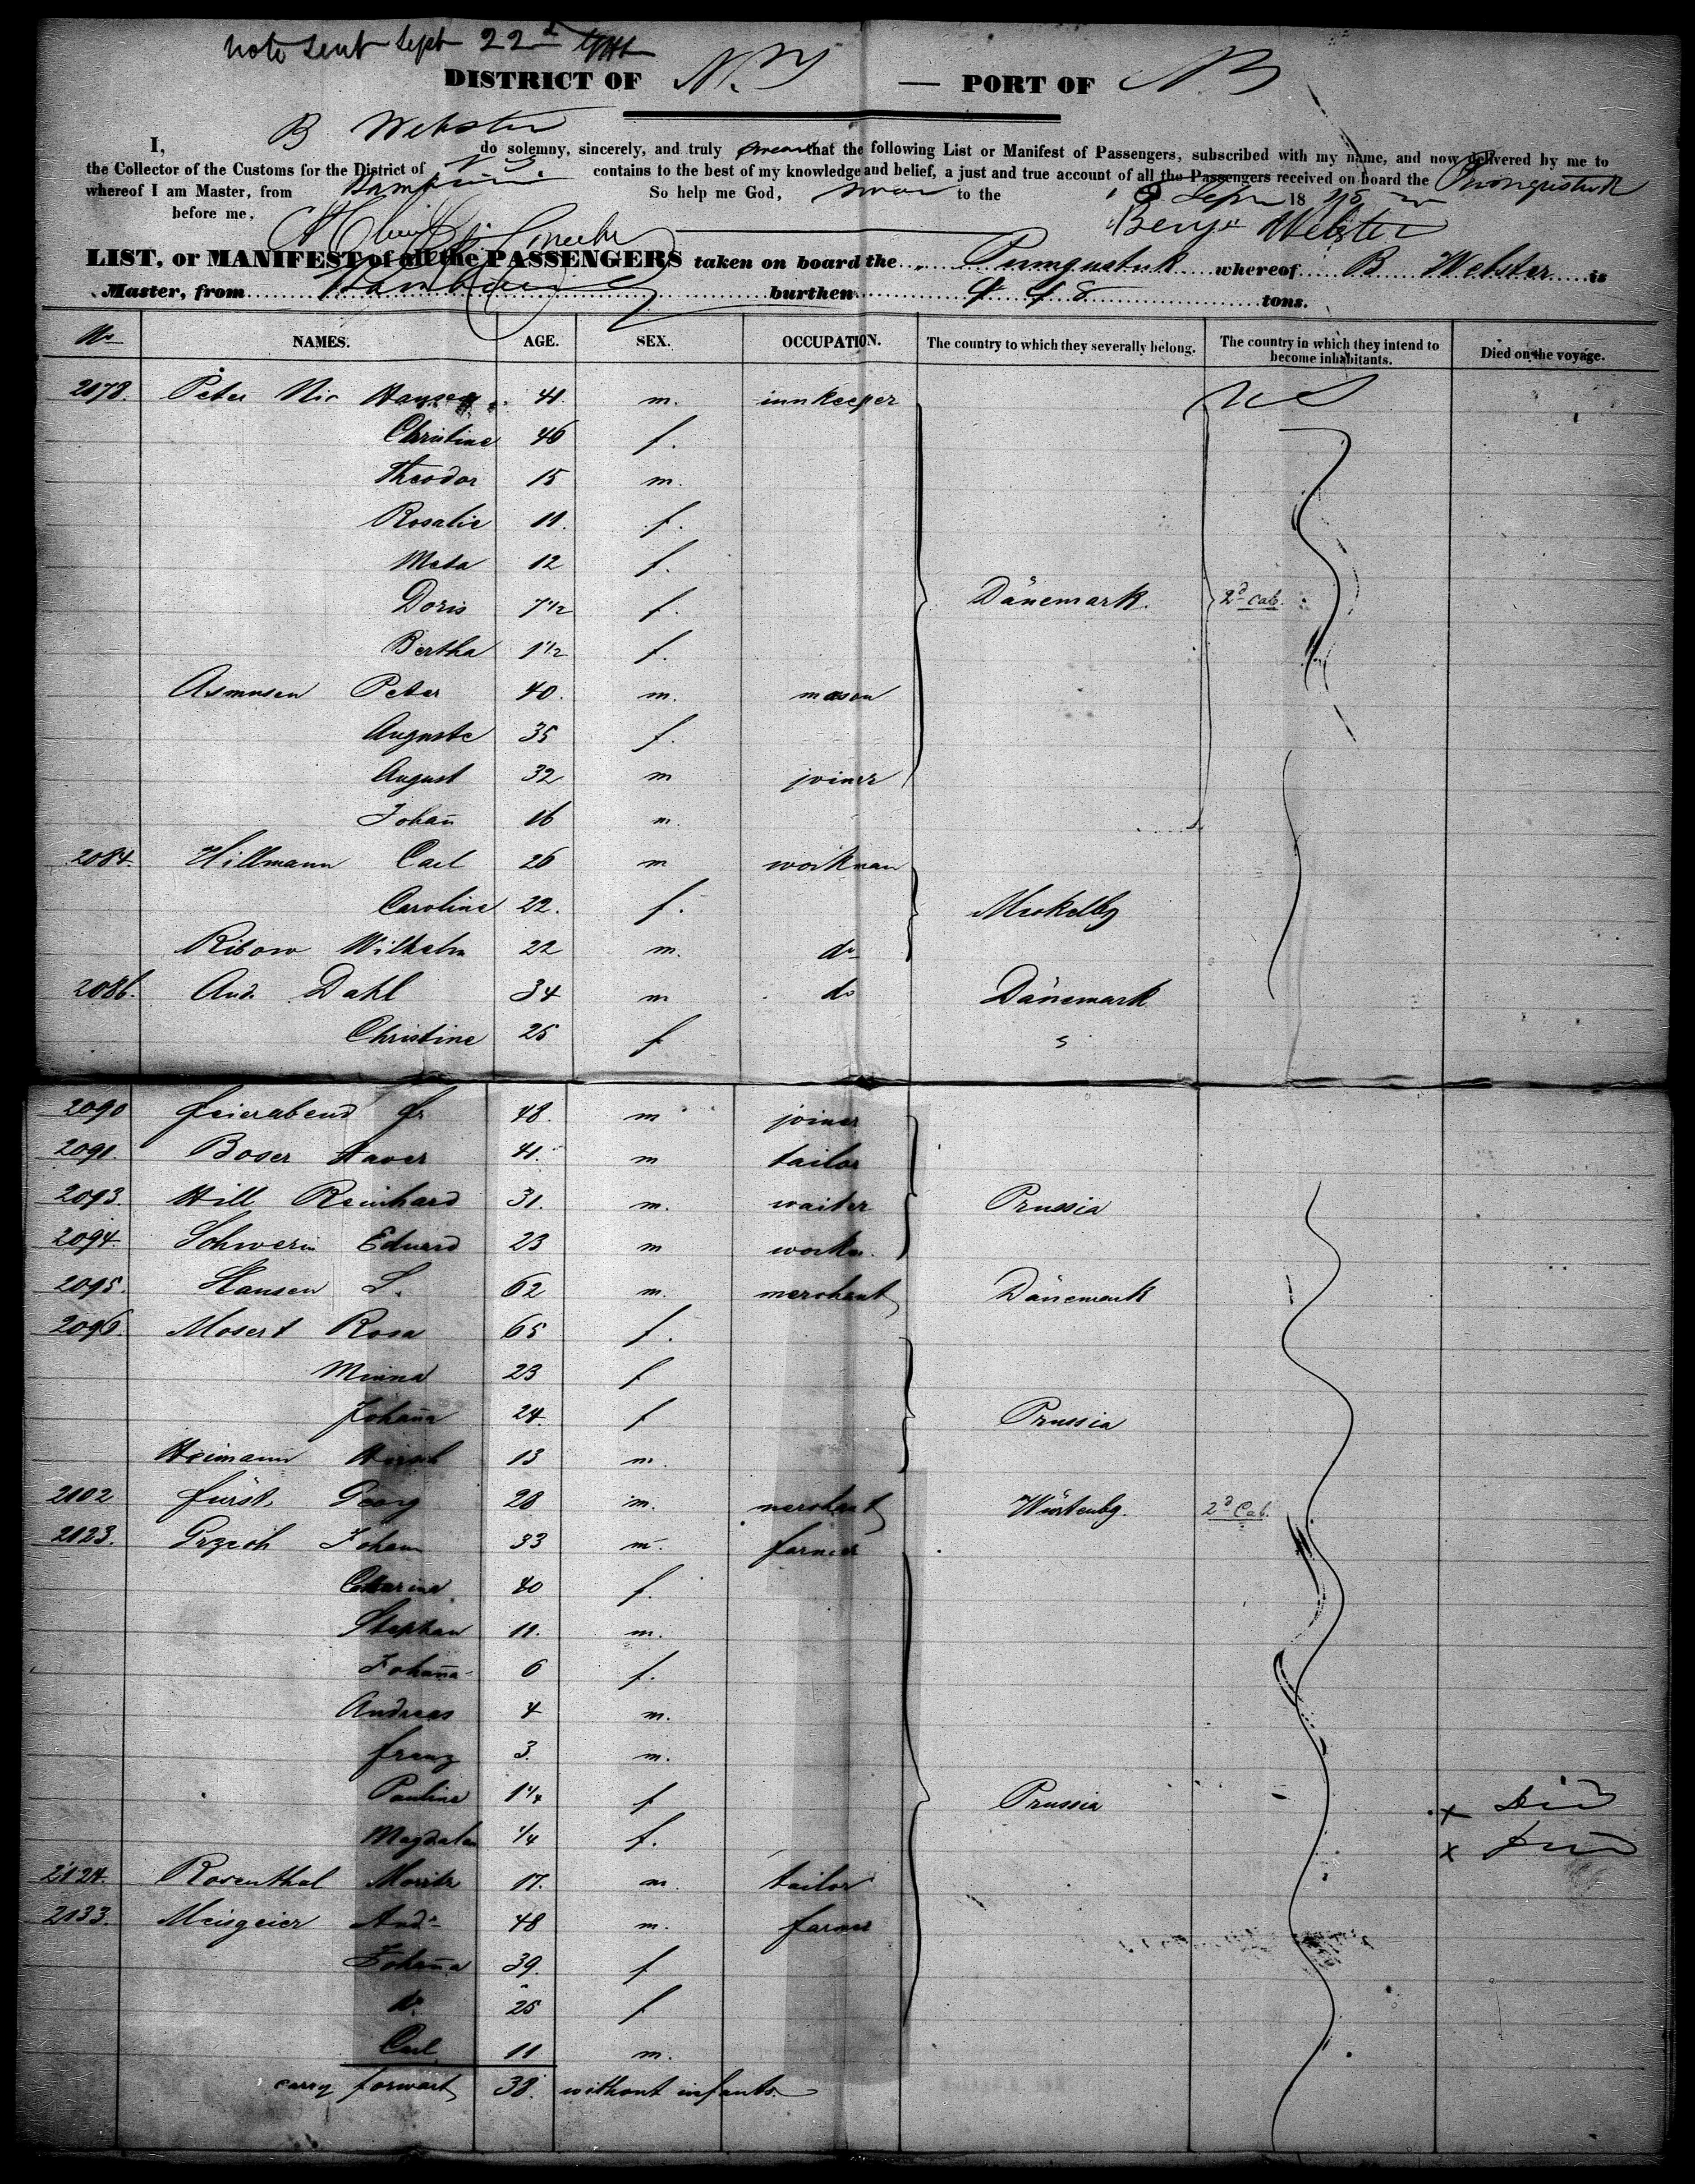 note sent Sept 22d
DISTRICT OF N.Y — PORT OF NY
I, B Webster do solemny, sincerely, and truly swear that the following List or Manifest of Passengers, subscribed with my name, and now delivered by me to
the Collector of the Customs for the District of NY contains to the best of my knowledge and belief, a just and true account of all the Passengers received on board the
whereof I am Master, from Hamburg So help me God, sworn to the 18
before me, Benj Webster
LIST, or MANIFEST of all the PASSENGERS taken on board the whereof B Webster is
Master, from Hamburg burthen tons.
No NAMES. AGE. SEX. OCCUPATION. The country to which they severally belong. The country in which they intend to become inhabitants. Died on the voyage.
2078. Peter Nic Hansen 41. m. innkeeper U S
Christine 46 f.
Theodor 15 m.
Rosalie 11. f.
Meta 12 f.
Doris 7 1/2 f. Dänemark. 2d cab.
Bertha 1 1/2 f.
Asmusen Peter 40. m. mason
Auguste 35 f.
August 32 m joiner
Johañ 16 m.
2084. Hillmann Carl 26 m workman
Caroline 22. f. Meckelbg
Ribow Wilhelm 22 m. do
2086. And. Dahl 34 m do Dänemark
Christine 25 f "
2090 Feierabend Fr 48. m joiner
2091. Boser Xaver 41. m tailor
2093. Hill Reinhard 31. m. waiter Prussia
2094. Schwerin Eduard 23 m workm.
2095. Hansen L. 62 m. merchant Dänemark
2096. Mosert Rosa 65 f.
Minna 23 f
Johaña 24. f Prussia
Heimann Hirsch 13 m.
2102 Fürst Georg 28 m. merchant Würtenbg. 2d Cab.
2123. Grzech Johann 33 m. farmer
Catharina 40 f.
Stephan 11. m.
Johaña 6 f.
Andreas 4 m.
Franz 3. m.
Pauline 1 1/4 f Prussia x Died
Magdalen 1/4 f. x Died
2124. Rosenthal Moritz 17. m. tailor
2133. Meisgeier And. 48 m. farmer
Johaña 39. f
do 25 f
Carl 11 m.
carry forwart 38. without infants.